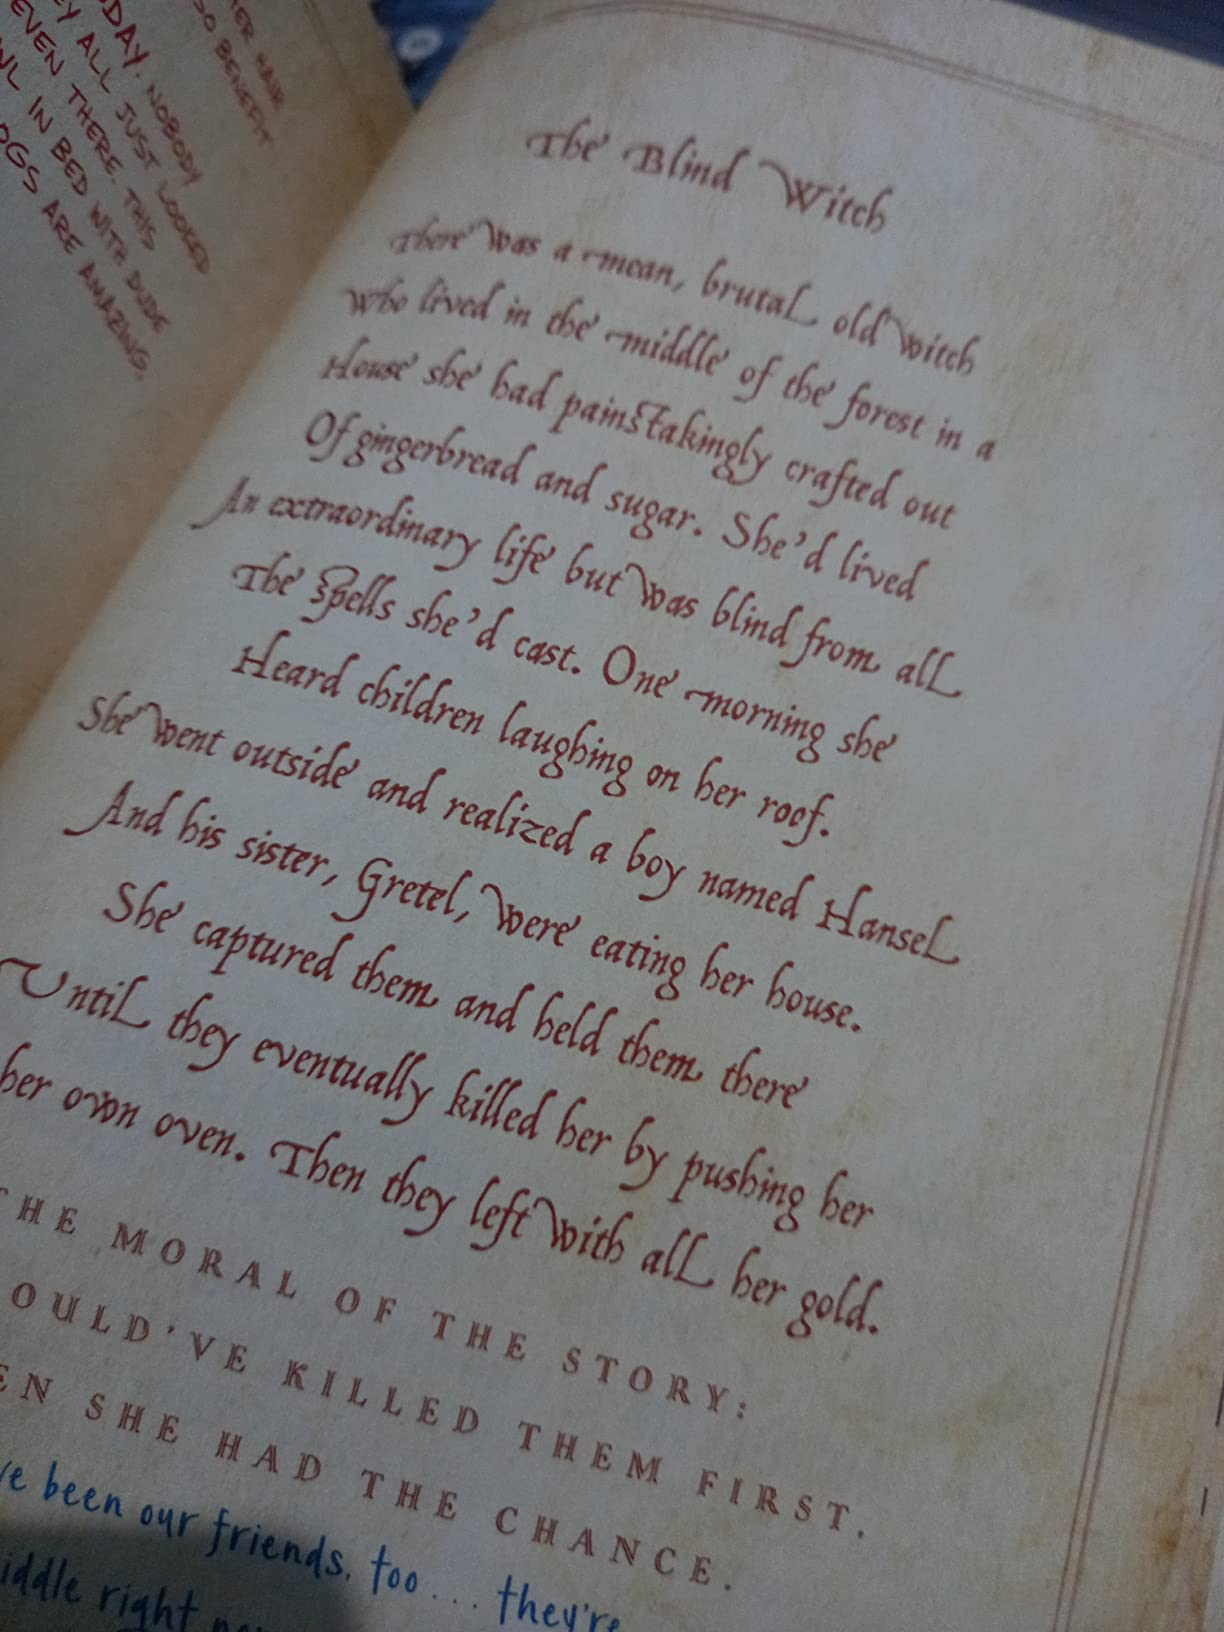 HER HAIR
SO BENEFIT
DAY. NOBODY
ALL JUST LOOKED
EVEN THERE. THIS
IN BED WITH DUDE
ARE AMAZING.
The Blind Witch
There was a mean, brutal old witch
Who lived in the middle of the forest in a
House she had painstakingly crafted out
Of gingerbread and sugar. She'd lived
An extraordinary life but was blind from all
The spells she'd cast. One morning she
Heard children laughing on her roof.
She went outside and realized a boy named Hansel
And his sister, Gretel, were eating her house.
She captured them and held them there
Until they eventually killed her by pushing her
her own oven. Then they left with all her gold.
THE MORAL OF THE STORY:
OULD'VE KILLED THEM FIRST.
EN SHE HAD THE CHANCE.
've been our friends, too... they're
iddle right